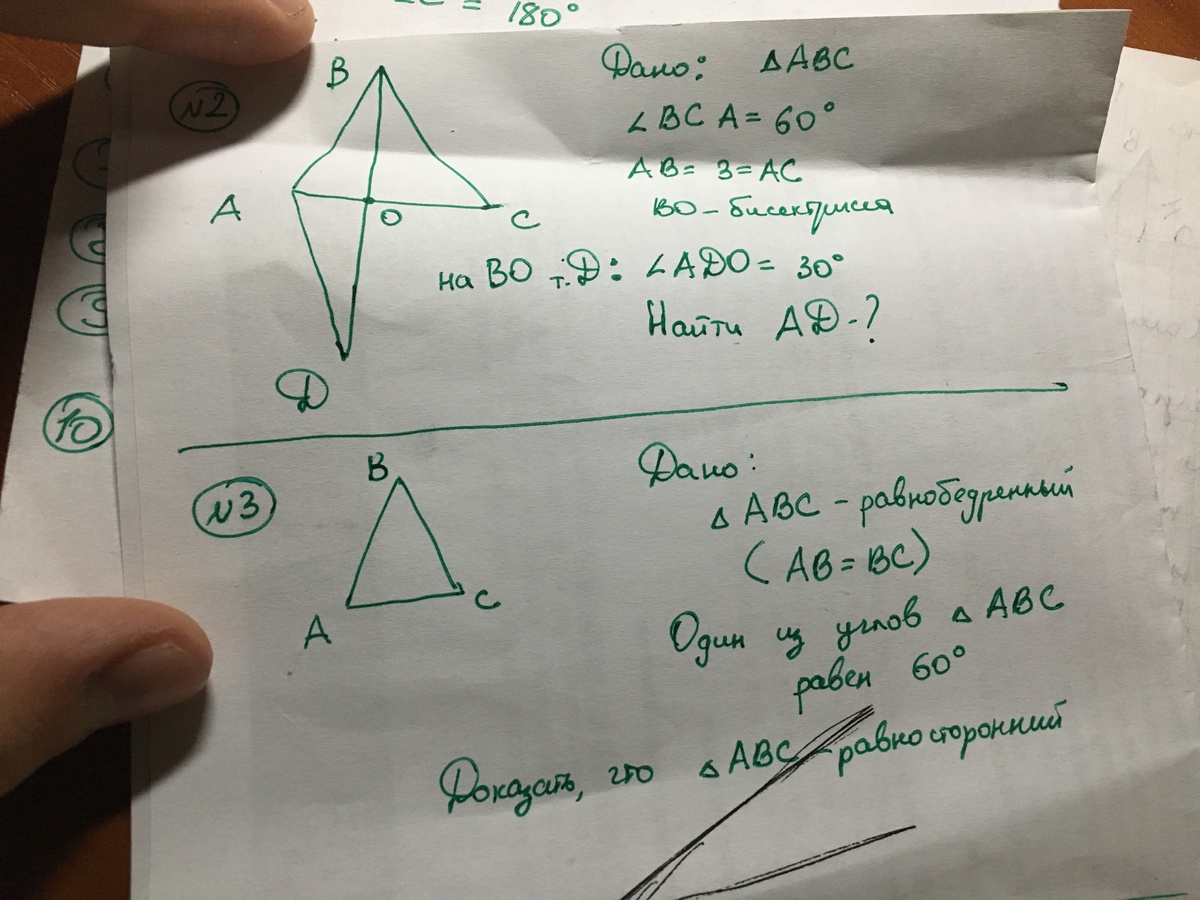 = 180°
N2
B
A
O
C
D
Дано: △ABC
∠BCA = 60°
AB = 3 = AC
BO – бисектриса
на BO т. D: ∠ADO = 30°
Найти AD - ?
10
N3
B
A
C
Дано:
△ABC – равнобедренный
(AB = BC)
Один из углов △ABC
равен 60°
Доказать, что △ABC – равносторонний